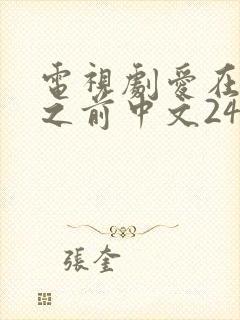 電視劇愛在
之前中文24
張奎